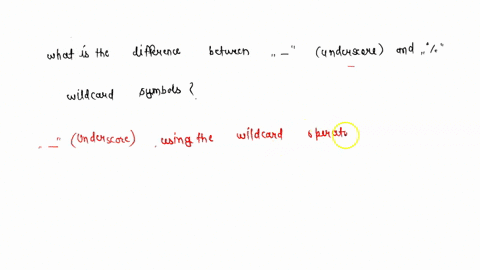 what is the difference between „_" (underscore) and „%"
wildcard symbols ?
„_" (Underscore) using the wildcard operato